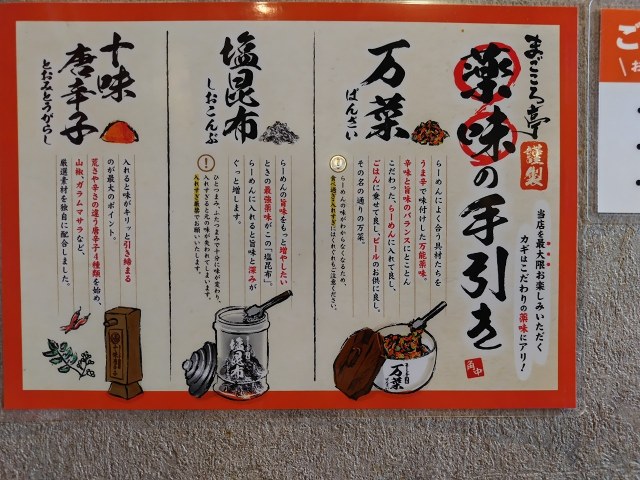 まごころ亭
謹製
薬味の手引き
当店を最大限お楽しみいただく
カギはこだわりの薬味にアリ!
万菜
ばんさい
らーめんによく合う具材たちを
うま辛で味付けした万能薬味。
辛味と旨味のバランスにとことん
こだわった、らーめんに入れて良し、
ごはんに乗せて良し、ビールのお供に良し、
その名の通りの万菜。
らーめんの味がわからなくなるため、
食べ過ぎ入れすぎにはくれぐれもご注意ください。
万菜
塩昆布
しおこんぶ
らーめんの旨味をもっと増やしたい
ときの最強薬味がこの「塩昆布」。
らーめんに入れると旨味と深みが
ぐっと増します。
ひとつまみ、ふたつまみで十分に味が変わり、
入れすぎると元の味が失われてしまいます。
入れすぎ厳禁でお願いいたします。
塩昆布
十味
唐辛子
とおみとうがらし
入れると味がキリッと引き締まる
のが最大のポイント。
荒さや辛さの違う唐辛子4種類を始め、
山椒、ガラムマサラなど、
厳選素材を独自に配合しました。
ご
お